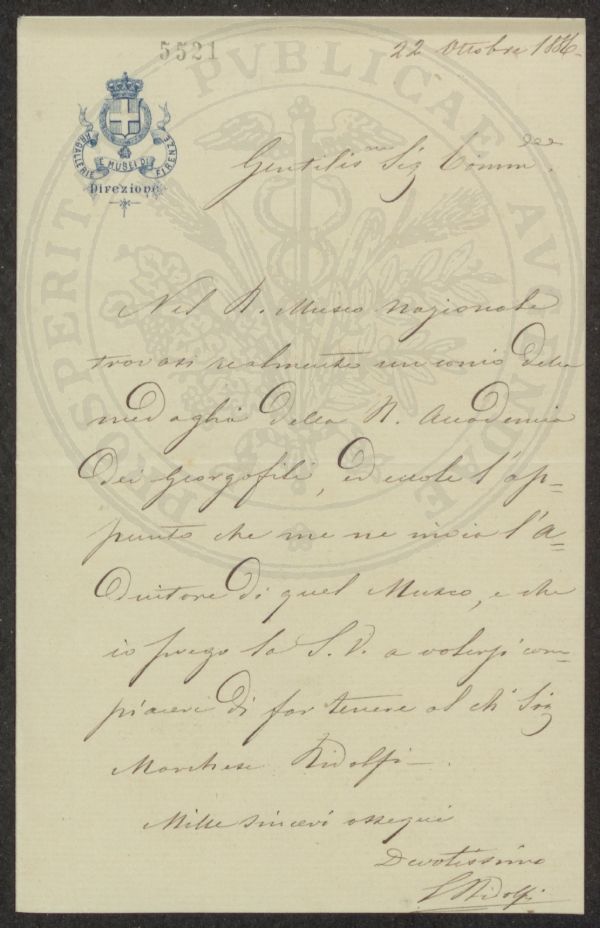 5521
22 Ottobre 1886
R. GALLERIE E MUSEI DI FIRENZE
Direzione
PROSPERITATI PVBLICAE AVGENDAE
Gentiliss.mo Sig Comm.
Nel R. Museo Nazionale
trovasi realmente un conio della
medaglia della R. Accademia
dei Georgofili, ed eccole l'ap=
punto che me ne invia l'a=
diutore di quel Museo, e che
io prego la S. V. a volersi com=
piacere di far tenere al ch. Sig
Marchese Ridolfi.
Mille sinceri ossequi
Devotissimo
Ridolfi